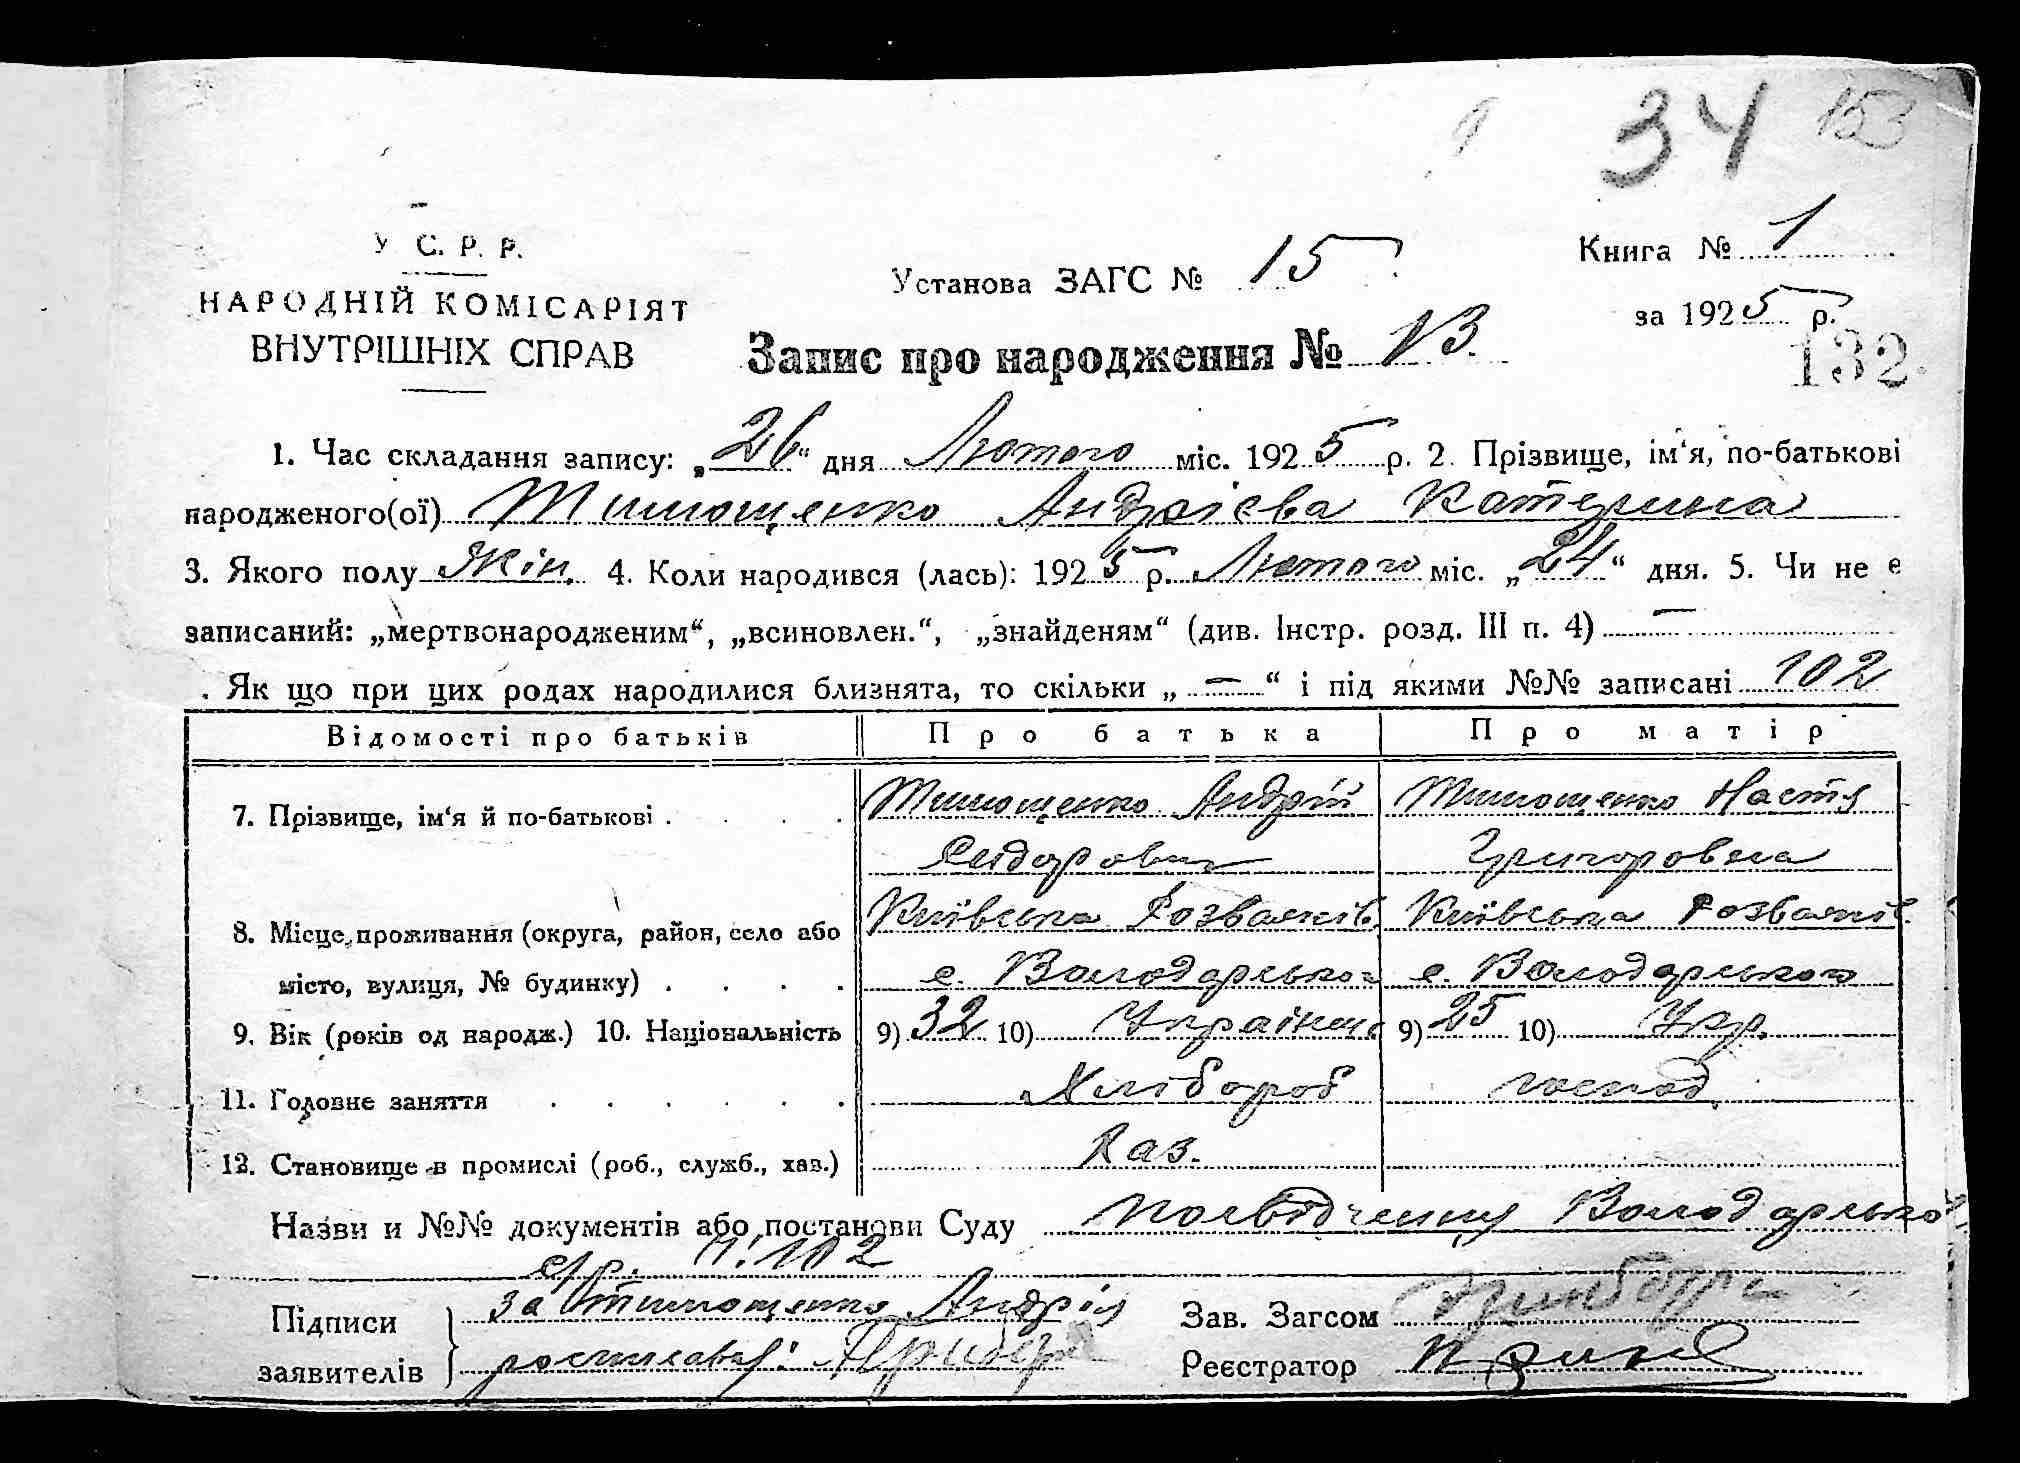 34 153
У С. Р. Р.
НАРОДНІЙ КОМІСАРІЯТ
ВНУТРІШНІХ СПРАВ
Установа ЗАГС № 15
Книга № 1
за 1925 р.
Запис про народження № 13.
132
1. Час складання запису: „26" дня Лютого міс. 1925 р. 2. Прізвище, ім'я, по-батькові
народженого(ої) Тимощенко Андрієва Катерина
3. Якого полу Жін. 4. Коли народився (лась): 1925 р. Лютого міс. „24" дня. 5. Чи не є
записаний: „мертвонародженим", „всиновлен.", „знайденям" (див. Інстр. розд. III п. 4) —
. Як що при цих родах народилися близнята, то скільки „ — " і під якими №№ записані 102
Відомості про батьків Про батька Про матір
7. Прізвище, ім'я й по-батькові . . . . Тимощенко Андрій Тимощенко Настя
Сидорович Григоровна
8. Місце проживання (округа, район, село або Київська Розважів. Київська Розважів.
місто, вулиця, № будинку) . . . . с. Володарського с. Володарського
9. Вік (років од народж.) 10. Національність 9) 32 10) Українець 9) 25 10) Укр.
11. Головне заняття . . . . . . Хлібороб господ.
12. Становище в промислі (роб., служб., хаз.) Хаз.
Назви и №№ документів або постанови Суду посвідчення Володарської
с/р. ч. 102
Підписи за Тимощенко Андрія
заявителів росписався:
Зав. Загсом
Реєстратор